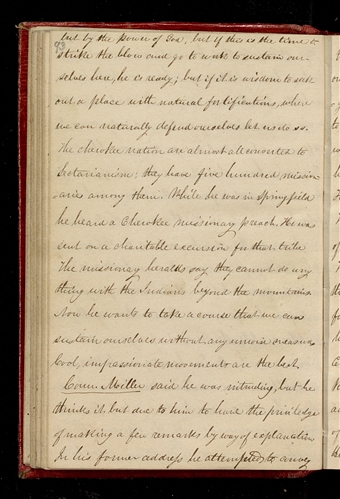 93
but by the power of God, but if this is the time to
strike the blow and go to work to sustain our-
selves here, he is ready; but if it is wisdom to seek
out a place with natural fortifications, where
we can naturally defend ourselves let us do so.
The cherokee nation are almost all converted to
Sectarianism; they have five hundred mission-
aries among them. While he was in Springfield
he heard a Cherokee missionary preach. He was
sent on a charitable excursion for that tribe
The missionary heralds say they cannot do any
thing with the Indians beyond the mountains.
Now he wants to take a course that we can
sustain ourselves without any union
Cool, impassionate movements are the best.
Coun. Miller said he was intruding, but he
thinks it but due to him to have the priviledge
of making a few remarks by way of explanation
In his former address he attempted to convey